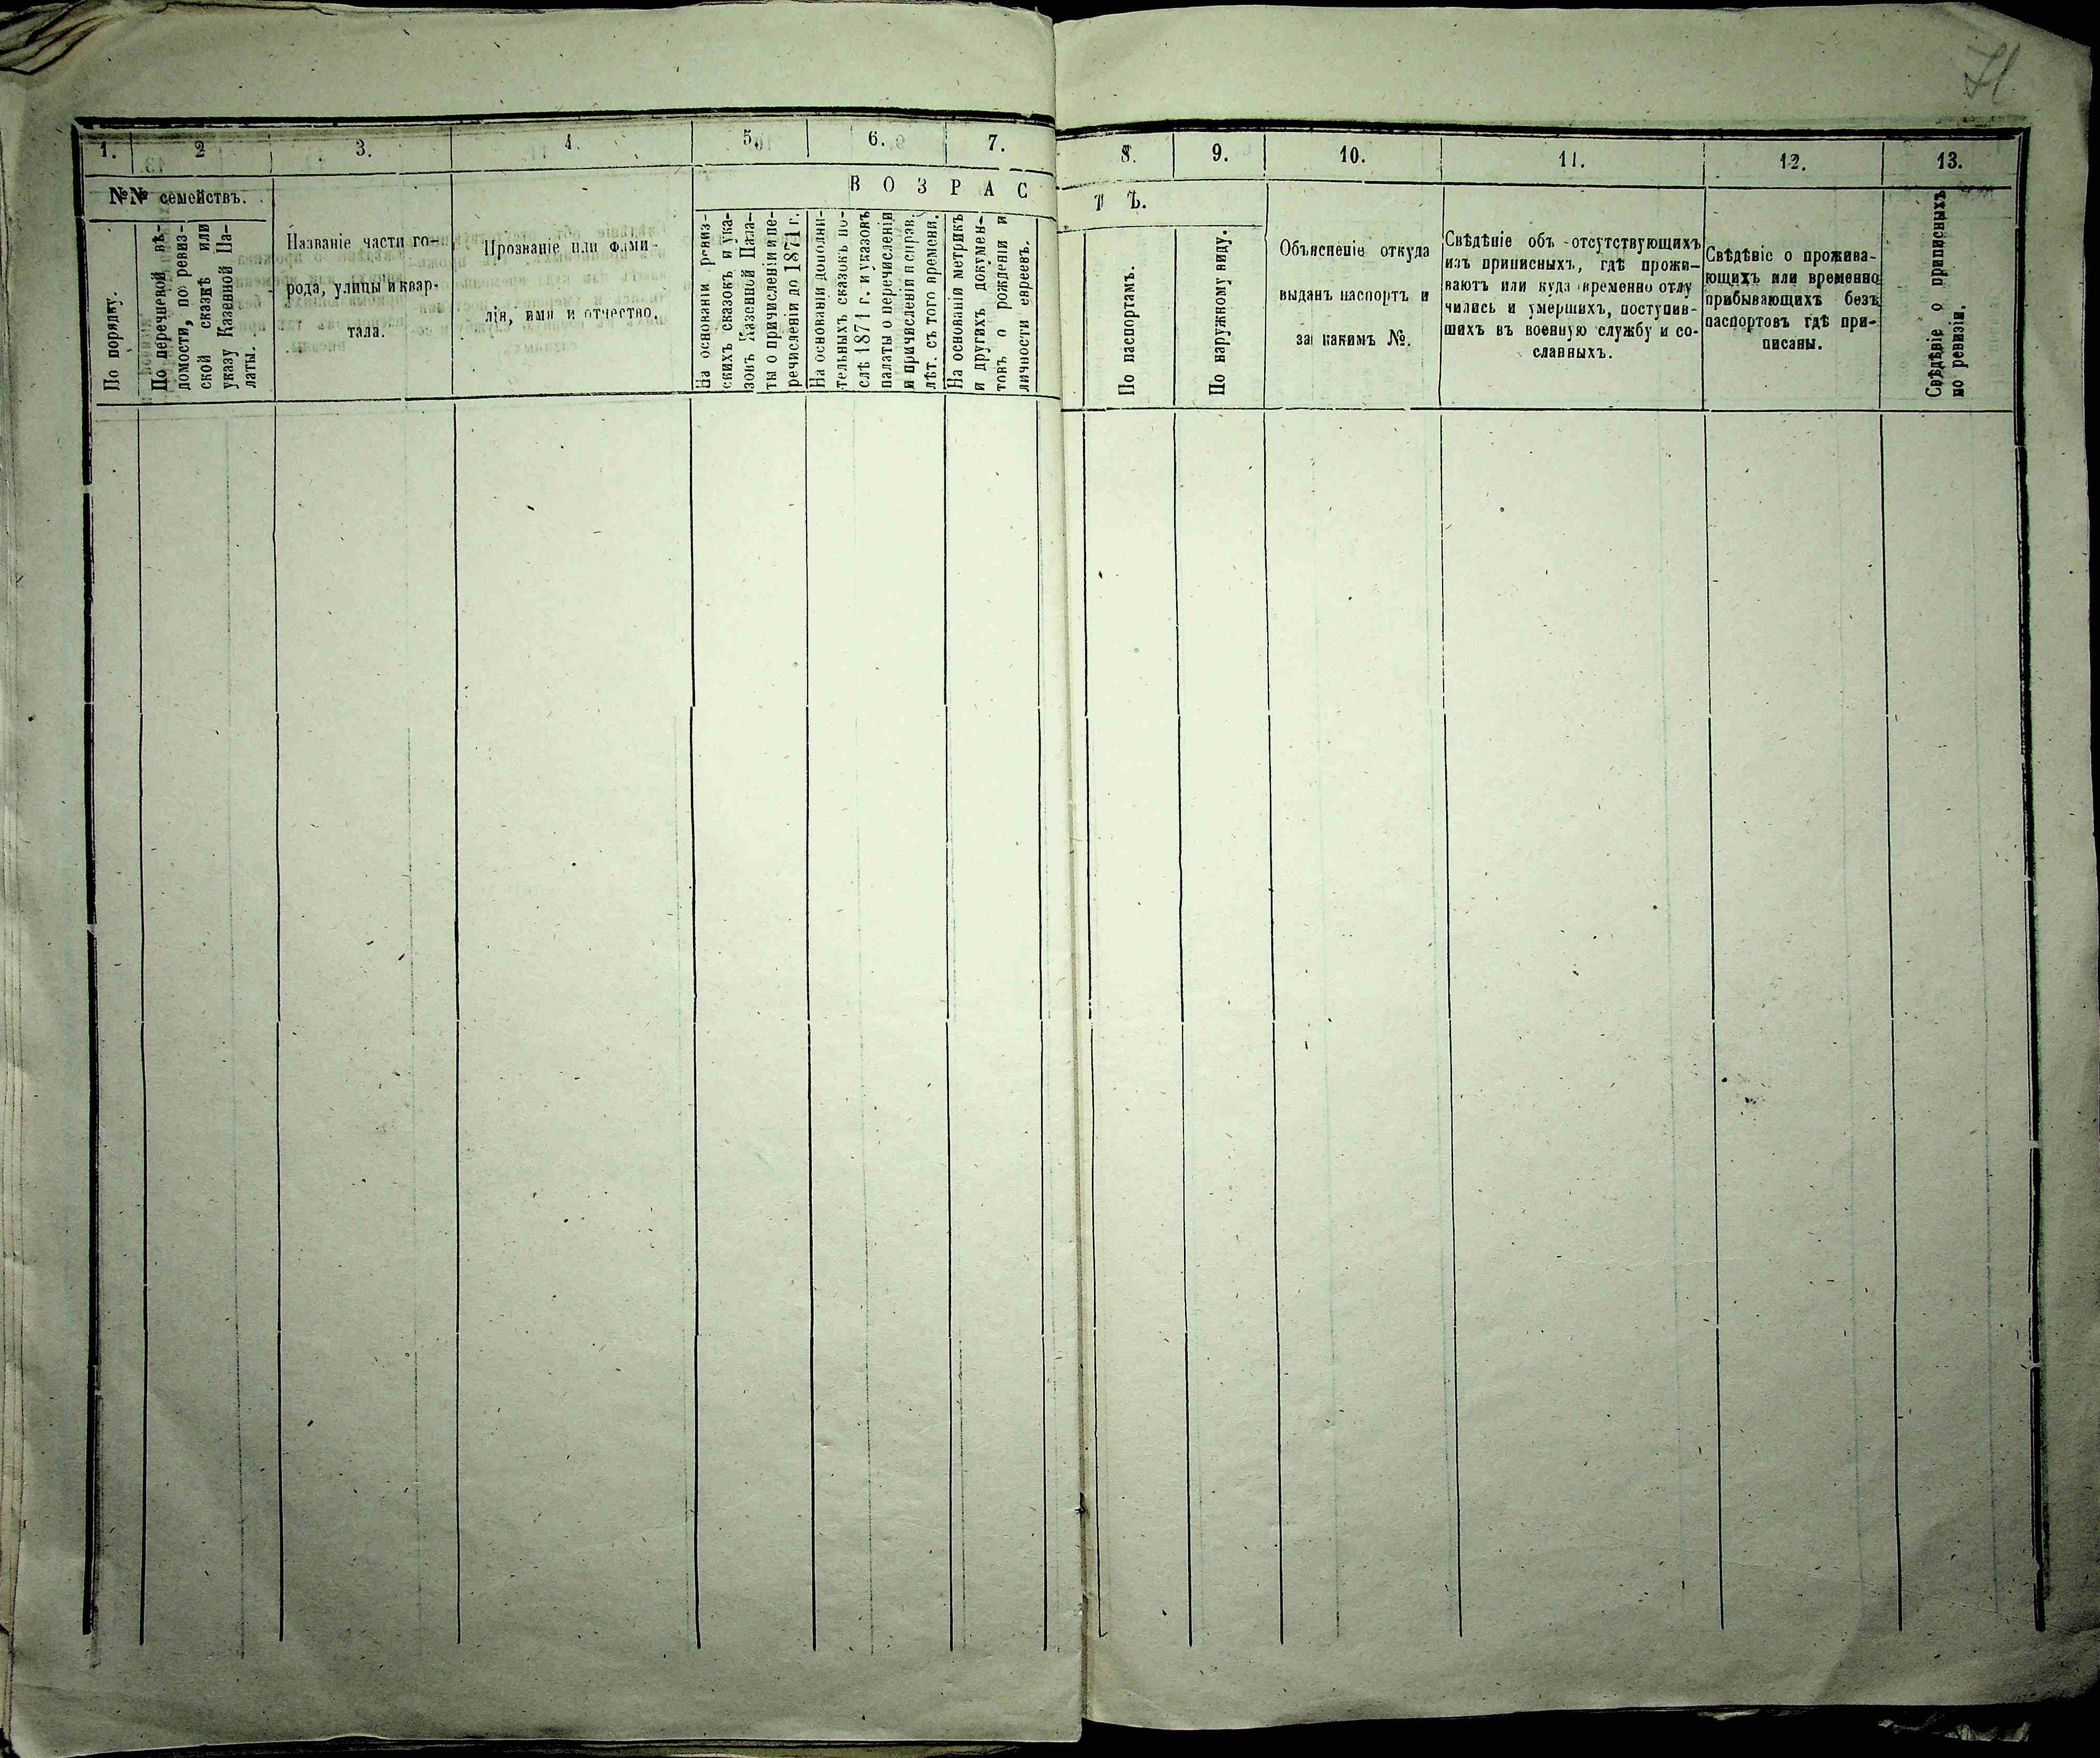 71
1.
2
3.
4.
5.
6.
7.
8.
9.
10.
11.
12.
13.
№№ семействъ.
По порядку.
По перечневой вѣ-
домости, по ревиз-
ской сказкѣ или
указу Казенной Па-
латы.
Названіе части го-
рода, улицы и квар-
тала.
Прозваніе или фами-
лія, имя и отчество.
ВОЗРАС
ТЪ.
На основаніи ревиз-
скихъ сказокъ и ука-
зовъ Казенной Пала-
ты о причисленіи и пе-
речисленіи до 1871 г.
На основаніи дополни-
тельныхъ сказокъ по-
слѣ 1871 г. и указовъ
палаты о перечисленіи
и причисленіи исправ.
лѣт. съ того времени.
На основаніи метрикъ
и другихъ докумен-
товъ о рожденіи и
личности евреевъ.
По паспортамъ.
По наружному виду.
Объясненіе откуда
выданъ паспортъ и
за какимъ №.
Свѣдѣніе объ отсутствующихъ
изъ приписныхъ, гдѣ прожи-
ваютъ или куда временно отлу
чились и умершихъ, поступив-
шихъ въ военную службу и со-
сланныхъ.
Свѣдѣніе о прожива-
ющихъ или временно
прибывающихъ безъ
паспортовъ гдѣ при-
писаны.
Свѣдѣніе о приписныхъ
по ревизіи.